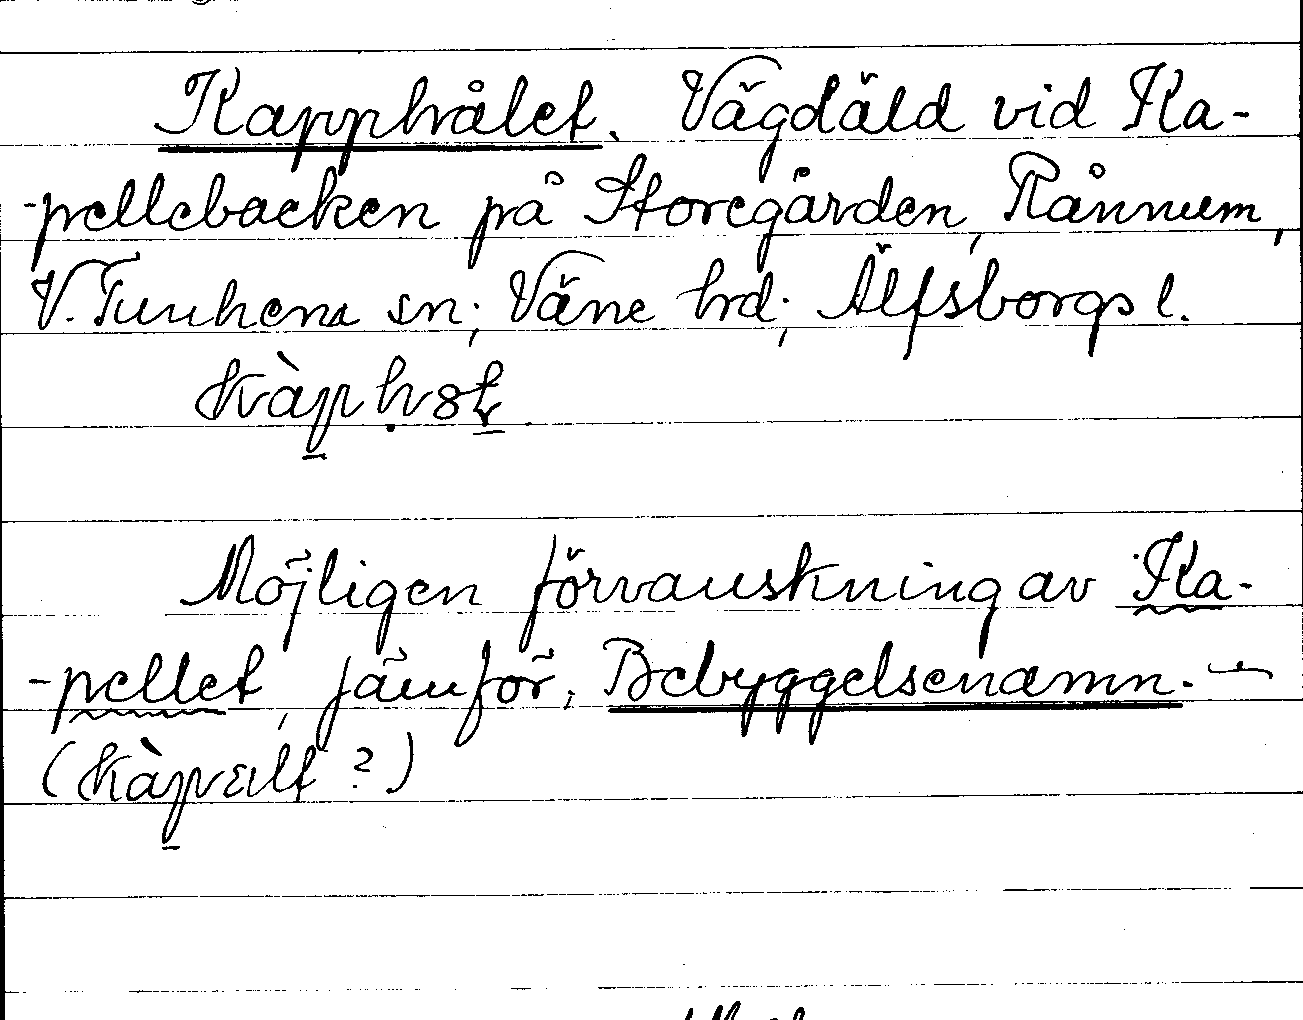 Kapphålet. Vägdäld vid Ka-
-pellebacken på Storegården, Rånnum,
V. Tunhems sn; Väne hrd; Älfsborgs l.
Möjligen förvanskning av Ka-
-pellet, jämför, Bebyggelsenamn. -